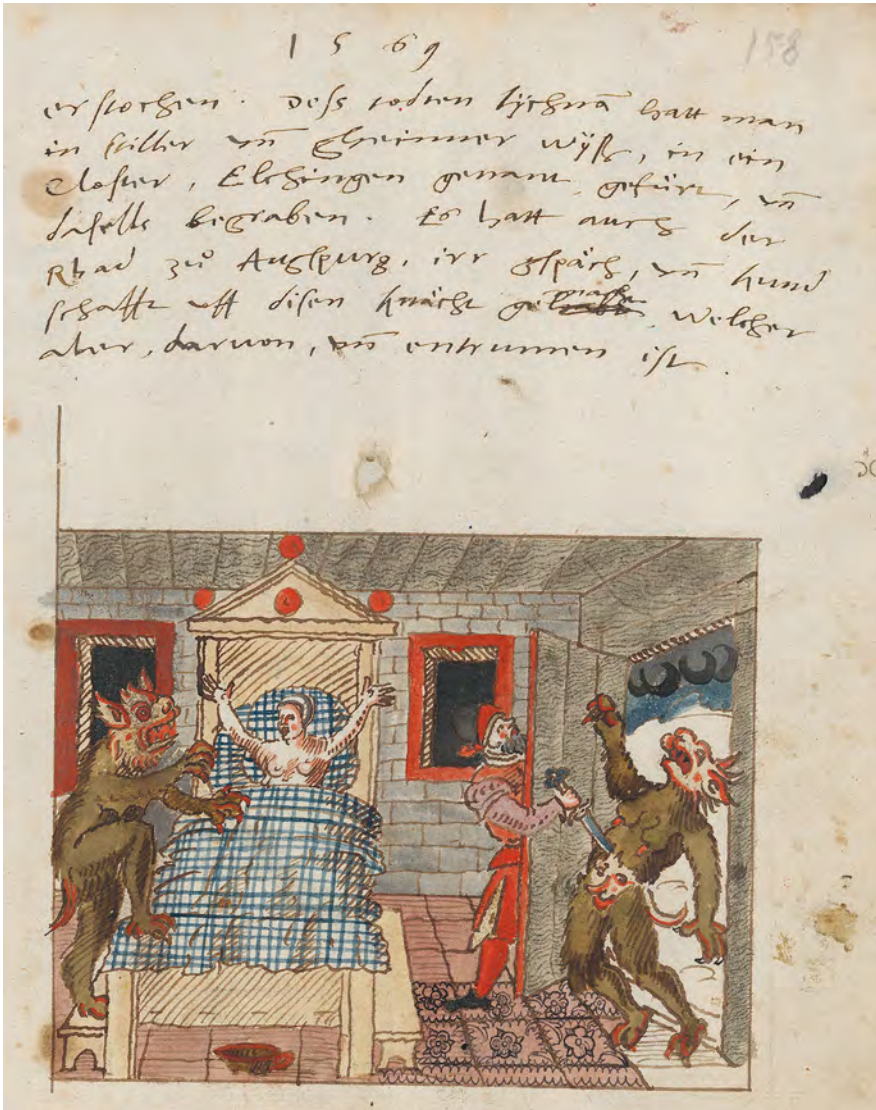 1569
158
erstochen. Dess todten lychnā hatt man
in stiller vn̄ gheimmer wyß, in ein
Closter, Elchingen genant, gefürt, vn̄
daselbs begraben. Es hatt auch der
Rhad zů Augspurg, irr gspäch, vn̄ kund
schafft vff disen knächt gemacht, welcher
aber, daruon, vn̄ entrunnen ist.